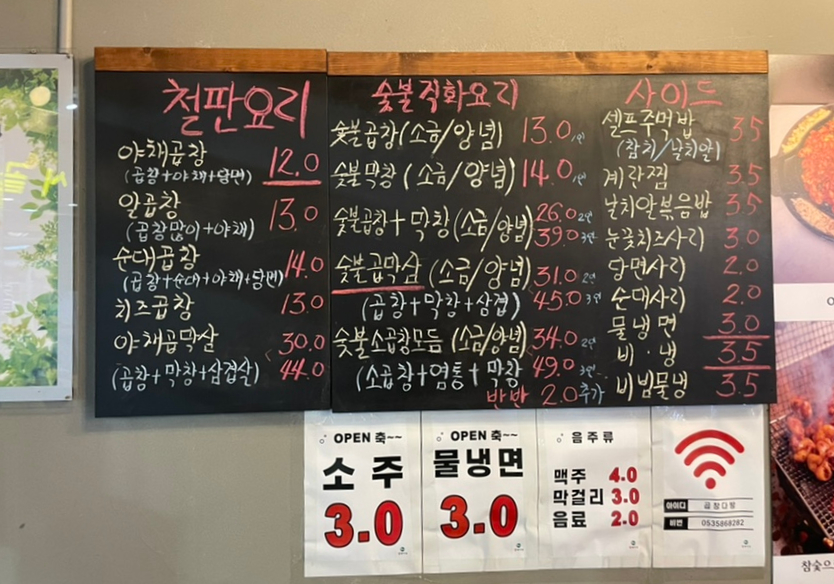 철판요리
야채곱창 12.0
(곱창+야채+당면)
알곱창 13.0
(곱창많이+야채)
순대곱창 14.0
(곱창+순대+야채+당면)
치즈곱창 13.0
야채곱막살 30.0
(곱창+막창+삼겹살) 44.0
숯불직화요리
숯불곱창(소금/양념) 13.0/1인
숯불막창(소금/양념) 14.0/1인
숯불곱창+막창(소금/양념) 26.0 2인
39.0 3인
숯불곱막삼(소금/양념) 31.0 2인
(곱창+막창+삼겹) 45.0 3인
숯불소곱창모듬(소금/양념) 34.0 2인
(소곱창+염통+막창 49.0 3인
반반 2.0 추가
사이드
셀프주먹밥 3.5
(참치/날치알)
계란찜 3.5
날치알볶음밥 3.5
눈꽃치즈사리 3.0
당면사리 2.0
순대사리 2.0
물냉면 3.0
비·냉 3.5
비빔물냉 3.5
OPEN 축~~
소주
3.0
OPEN 축~~
물냉면
3.0
음주류
맥주 4.0
막걸리 3.0
음료 2.0
아이디 곱창다방
비번 0535868282
참숯으